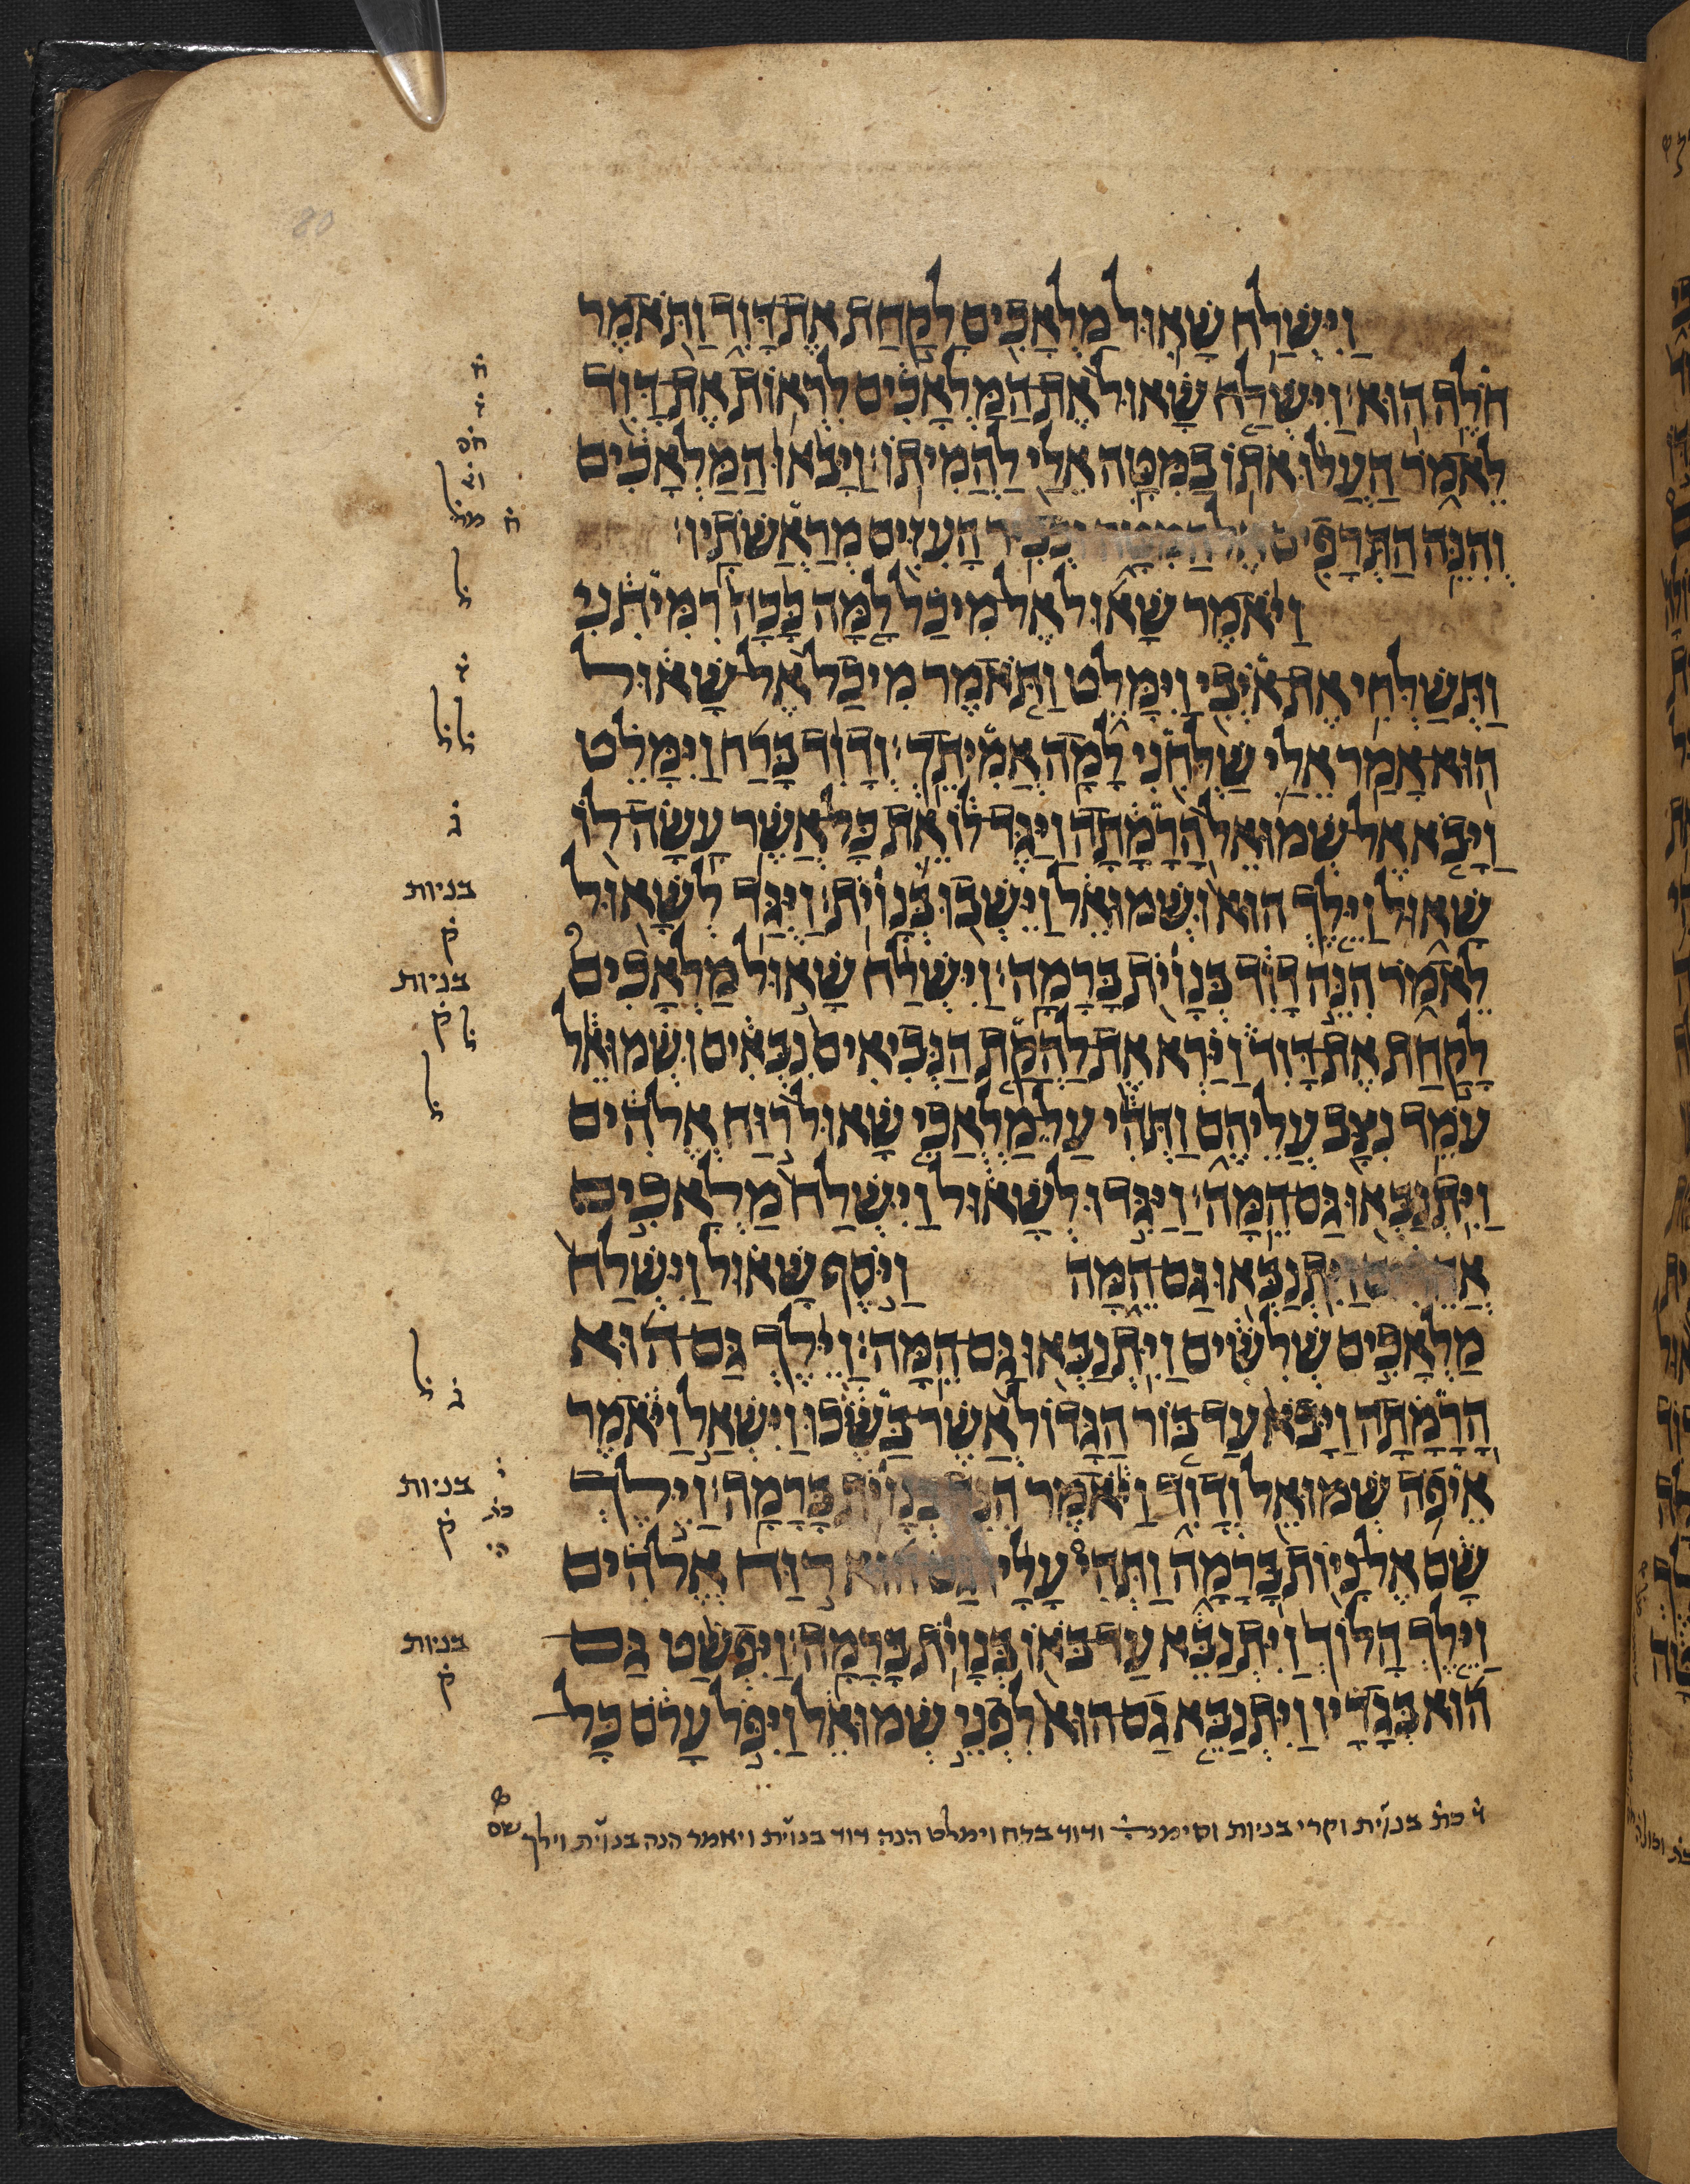 וַיִּשְׁלַח שָׁאוּל מַלְאָכִים לָקַחַת אֶת דָּוִד וַתֹּאמֶר
חֹלֶה הוּא׃ וַיִּשְׁלַח שָׁאוּל אֶת הַמַּלְאָכִים לִרְאוֹת אֶת דָּוִד
לֵאמֹר הַעֲלוּ אֹתוֹ בַמִּטָּה אֵלַי לַהֲמִיתוֹ׃ וַיָּבֹאוּ הַמַּלְאָכִים
וְהִנֵּה הַתְּרָפִים אֶל הַמִּטָּה וּכְבִיר הָעִזִּים מְרַאֲשֹׁתָיו׃
וַיֹּאמֶר שָׁאוּל אֶל מִיכַל לָמָּה כָּכָה רִמִּיתִנִי
וַתְּשַׁלְּחִי אֶת אֹיְבִי וַיִּמָּלֵט וַתֹּאמֶר מִיכַל אֶל שָׁאוּל
הוּא אָמַר אֵלַי שַׁלְּחִנִי לָמָה אֲמִיתֵךְ׃ וְדָוִד בָּרַח וַיִּמָּלֵט
וַיָּבֹא אֶל שְׁמוּאֵל הָרָמָתָה וַיַּגֶּד לוֹ אֵת כָּל אֲשֶׁר עָשָׂה לוֹ
שָׁאוּל וַיֵּלֶךְ הוּא וּשְׁמוּאֵל וַיֵּשְׁבוּ בְּנָוֹיִת׃ וַיֻּגַּד לְשָׁאוּל
לֵאמֹר הִנֵּה דָוִד בְּנָוֹיִת בָּרָמָה׃ וַיִּשְׁלַח שָׁאוּל מַלְאָכִים
לָקַחַת אֶת דָּוִד וַיַּרְא אֶת לַהֲקַת הַנְּבִיאִים נִבְּאִים וּשְׁמוּאֵל
עֹמֵד נִצָּב עֲלֵיהֶם וַתְּהִי עַל מַלְאֲכֵי שָׁאוּל רוּחַ אֱלֹהִים
וַיִּתְנַבְּאוּ גַּם הֵמָּה׃ וַיַּגִּדוּ לְשָׁאוּל וַיִּשְׁלַח מַלְאָכִים
אֲחֵרִים וַיִּתְנַבְּאוּ גַּם הֵמָּה וַיֹּסֶף שָׁאוּל וַיִּשְׁלַח
מַלְאָכִים שְׁלִשִׁים וַיִּתְנַבְּאוּ גַּם הֵמָּה׃ וַיֵּלֶךְ גַּם הוּא
הָרָמָתָה וַיָּבֹא עַד בּוֹר הַגָּדוֹל אֲשֶׁר בַּשֶּׂכוּ וַיִּשְׁאַל וַיֹּאמֶר
אֵיפֹה שְׁמוּאֵל וְדָוִד וַיֹּאמֶר הִנֵּה בְּנָוֹיִת בָּרָמָה׃ וַיֵּלֶךְ
שָׁם אֶל נָיוֹת בָּרָמָה וַתְּהִי עָלָיו גַּם הוּא רוּחַ אֱלֹהִים
וַיֵּלֶךְ הָלוֹךְ וַיִּתְנַבֵּא עַד בֹּאוֹ בְּנָוֹיִת בָּרָמָה׃ וַיִּפְשַׁט גַּם
הוּא בְּגָדָיו וַיִּתְנַבֵּא גַם הוּא לִפְנֵי שְׁמוּאֵל וַיִּפֹּל עָרֹם כָּל
בניות
ק
בניות
ק
בניות
ק
בניות
ק
כת בנוית וקרי בניות וסימנה ודוד ברח וימלט הנה דוד בנוית ויאמר הנה בנוית וילך שם